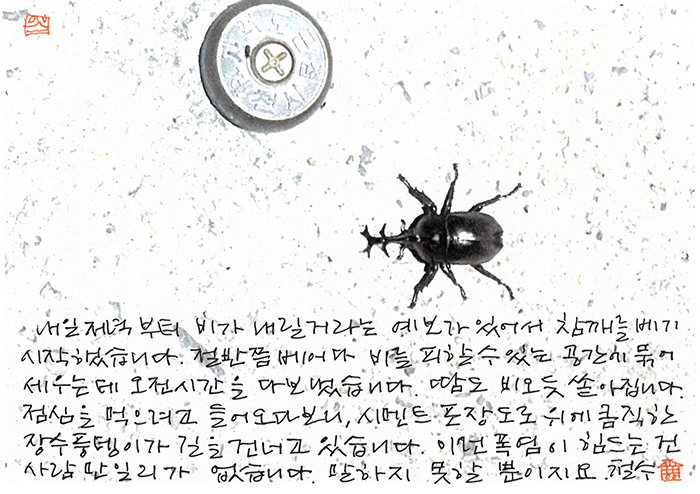 내일 저녁 부터 비가 내릴거라는 예보가 있어서 참깨를 베기
시작하였습니다. 절반쯤 베어다 비를 피할수 있는 공간에 묶어
세우는데 오전시간을 다보냈습니다. 땀도 비오듯 쏟아집니다.
점심을 먹으려고 들어오다보니, 시멘트 포장도로 위에 큼직한
장수풍뎅이가 길을 건너고 있습니다. 이런폭염이 힘드는 건
사람 만일리가 없습니다. 말하지 못할 뿐이지요. 철수